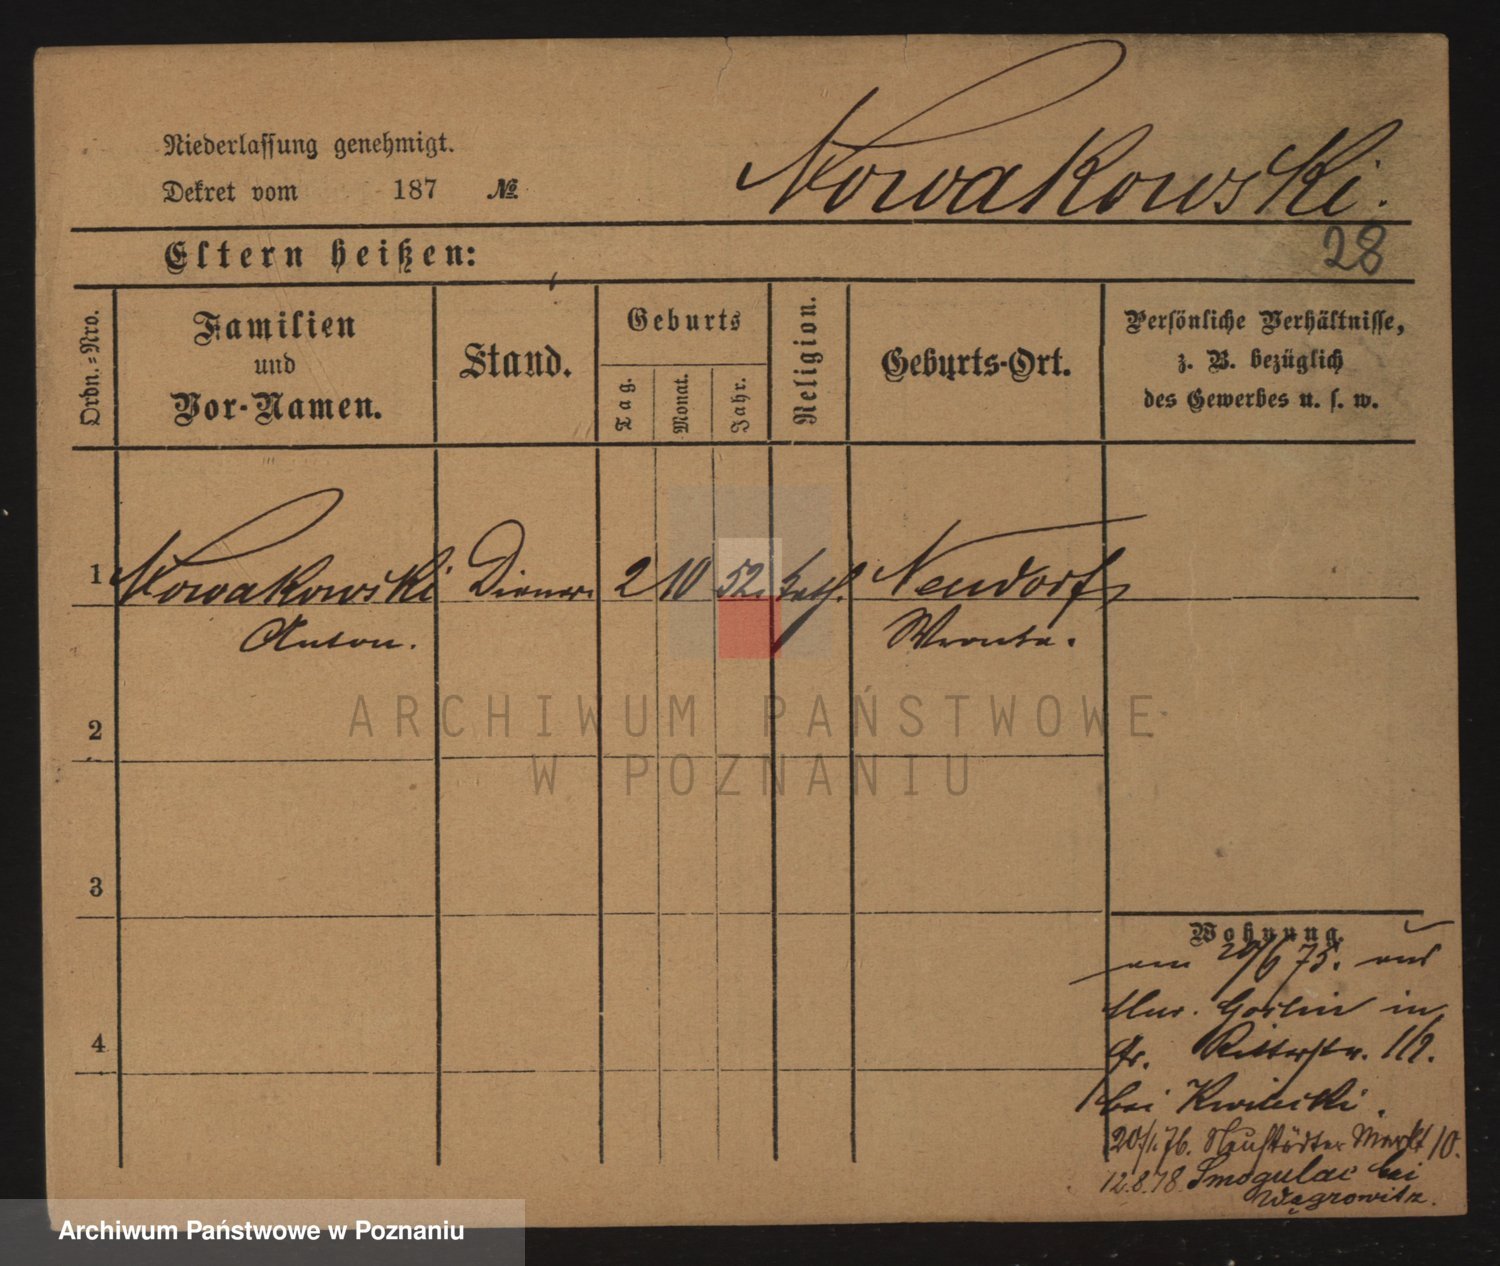 Niederlassung genehmigt.
Dekret vom 187 №
Nowakowski.
28
Eltern heißen:
Ordn.-Nro.
Familien
und
Vor-Namen.
Stand.
Geburts
Tag.
Monat.
Jahr.
Religion.
Geburts-Ort.
Persönliche Verhältnisse,
z. B. bezüglich
des Gewerbes u. s. w.
1 Nowakowski Diener 2 10 52. kath. Neudorf
Anton. Wronke.
2
3
4
Wohnung.
am 20/6 75. aus
Goslin in
Gr. Ritterstr. 1/2.
bei Kwilecki.
20/1.76. Neustädter Markt 10.
12.8.78. Smogulac bei
Wągrowitz.
ARCHIWUM PAŃSTWOWE
W POZNANIU
Archiwum Państwowe w Poznaniu